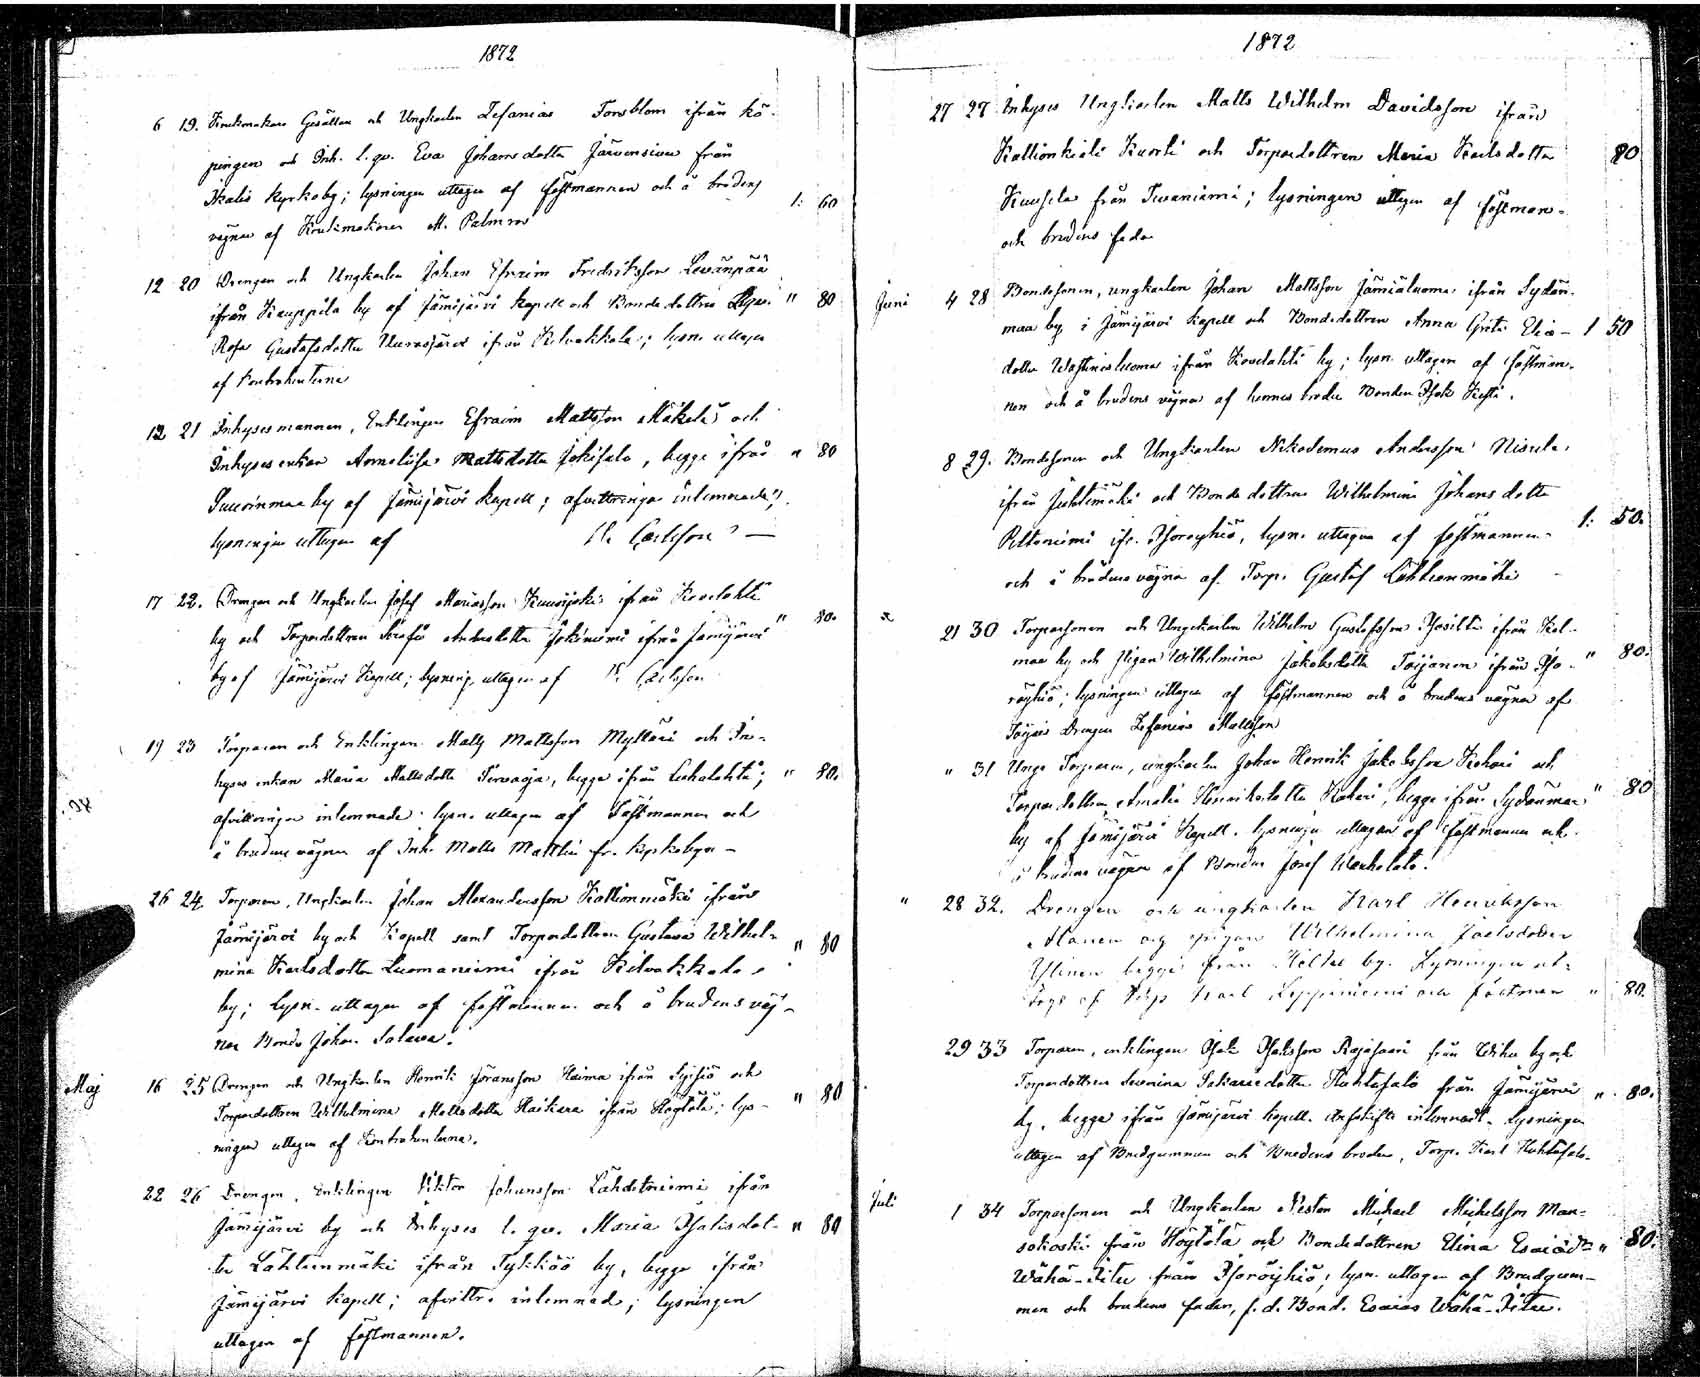 1872
6 19. Krukmakare Gesällen och Ungkarlen Zefanias Forsblom ifrån Kö-
pingen och Inh. l. qv. Eva Johansdotter Järvensivu från
Ikalis Kyrkoby; lysningen uttagen af fästmannen och å brudens 1: 60
vägnar af Krukmakaren M. Palmroo
12 20 Drengen och Ungkarlen Johan Efraim Fredriksson Levänpää
ifrån Kauppila by af Jämijärvi kapell och Bondedottren " 80
Rosa Gustafsdotter ifrån Kilvakkala; lysn. uttagen
af Kontrahenterne
12 21 Inhysesmannen, Enklingen Efraim Mattsson Mäkelä och
Inhysesenkan Annaliisa Mattsdotter Jokisalo, begge ifrån " 80
Suurimaa by af Jämijärvi Kapell; afvittringar inlemnade;
lysningen uttagen af Carlsson
17 22. Drengen och Ungkarlen Josef Mariasson Kuusijoki ifrån Kovelahti
by och Torpardottren Serafia Andersdotter Jokiniemi ifrån Jämijärvi " 80.
by af Jämijärvi Kapell; lysning. uttagen af Carlsson
19 23 Torparen och Enklingen Matts Mattsson Mylläri och In-
hyses enkan Maria Mattsdotter begge ifrån Luhalahti; " 80.
afvittringar inlemnade. lysn. uttagen af Fästmannen och
å brudens vägnar af Inh. Matts fr. Kyrkobyn –
26 24. Torparen, Ungkarlen Johan Alexandersson Kallionmäki ifrån
Jämijärvi by och Kapell samt Torpardottren Gustava Wilhel-
mina Karlsdotter Luomaniemi ifrån Kilvakkala " 80
by; lysn. uttagen af fästmannen och å brudens väg-
nar Bonde Johan Salava.
Maj 16 25 Drengen och Ungkarlen Henrik Göransson Haima ifrån och
Torpardottren Wilhelmina Mattsdotter Haikara ifrån Höytölä; lys- " 80
ningen uttagen af Kontrahenterna.
22 26 Drengen, Enklingen Viktor Johansson Lähdeniemi ifrån
Jämijärvi by och Inhyses l. qv. Maria Isaksdot- " 80
ter Lähteenmäki ifrån Tykköö by, begge ifrån
Jämijärvi Kapell; afvittr. inlemnad; lysningen
uttagen af Fästmannen.
1872
27 27 Inhyses Ungkarlen Matts Wilhelm Davidsson ifrån
Kallionkieli Kuorti och Torpardottren Maria Karlsdotter 80
från Tevaniemi; lysningen uttagen af fästman.
och brudens fader
Juni 4 28 Bondesonen, ungkarlen Johan Mattsson Jämiäluoma ifrån Sydän-
maa by i Jämijärvi Kapell och Bondedottren Anna Greta Elia- 1 50
dotter Wästinesluoma ifrån Kovelahti by; lysn. uttagen af fästman-
nen och å brudens vägnar af hennes broder Bonden Isak
8 29. Bondesonen och Ungkarlen Nikodemus Andersson Niskala
ifrån Juhtimäki och Bondedottren Wilhelmina Johansdotter
Peltoniemi ifr. Isoröyhiö, lysn. uttagen af fästmannen 1: 50.
och å brudens vägnar af Torp. Gustaf Lähteenmäki
21 30 Torparsonen och Ungkarlen Wilhelm Gustafsson ifrån Kel-
maa by och Pigan Wilhelmina Jakobsdotter ifrån Iso- " 80.
röyhiö; lysningen uttagen af fästmannen och å brudens vägnar af
Drengen Zefanias Mattsson
" 31 Unge Torparen, ungkarlen Johan Henrik Jakobsson och
Torpardottren Amalia Henriksdotter begge ifrån Sydänmaa " 80
by af Jämijärvi Kapell. lysningen uttagen af fästmannen och
å brudens vägnar af Bonden Josef
" 28 32. Drengen och ungkarlen Karl Henriksson
och pigan Wilhelmina
Ylinen begge från by. Lysningen ut-
tags af Torp Karl Leppiniemi och fästman " 80.
29 33 Torparen, enklingen Isak Isaksson Rajasaari från by och
Torpardottren Severina Sakarisdotter Huhtasalo från Jämijärvi " 80.
by, begge ifrån Jämijärvi kapell. Arfskifte inlemnadt. Lysningen
uttagen af Brudgummen och Brudens broder, Torp. Karl Huhtasalo.
Juli 1 34 Torparsonen och Ungkarlen Nestor Mickael Mickelsson Man-
sakoski från Höytölä och Bondedottren Elina Esaiasd:r " 80.
Wähä-Pitu från Isoröyhiö; lysn. uttagen af Brudgum-
men och brudens fader, f.d. Bond. Esaias Wähä-Pitu.